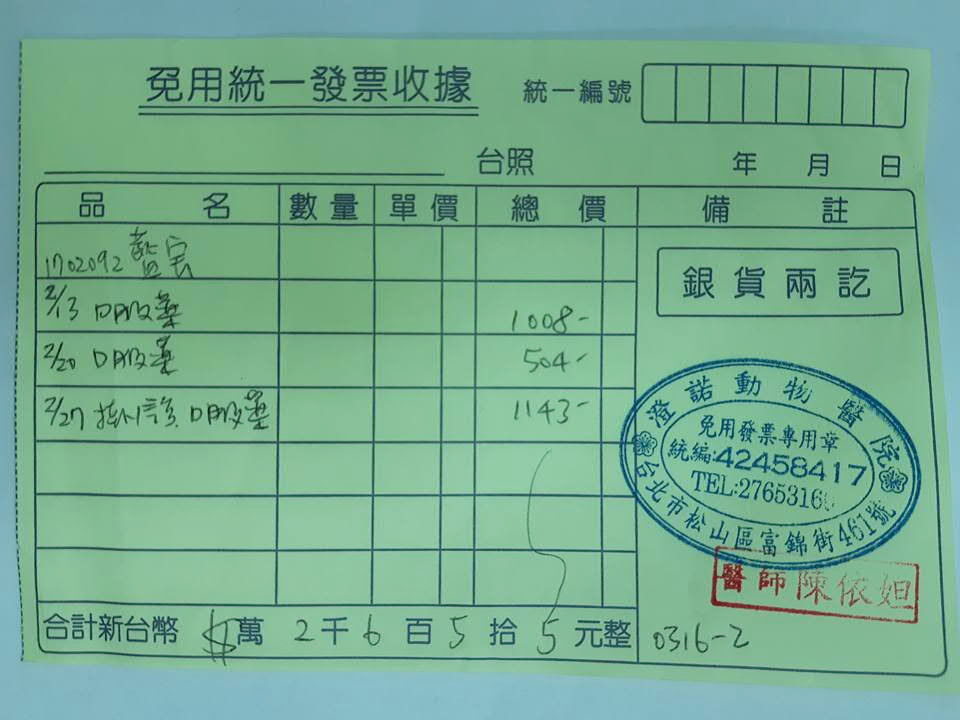 免用統一發票收據
統一編號
台照 年 月 日
品名 數量 單價 總價 備註
1702092 藍宝
銀貨兩訖
2/13 口服薬 1008-
2/20 口服薬 504-
2/27 掛號 口服薬 1143-
澄諾動物醫院
免用發票專用章
統編:42458417
TEL:2765316
台北市松山區富錦街461號
醫師陳依妲
合計新台幣 $萬 2千6百5拾5元整
0316-2